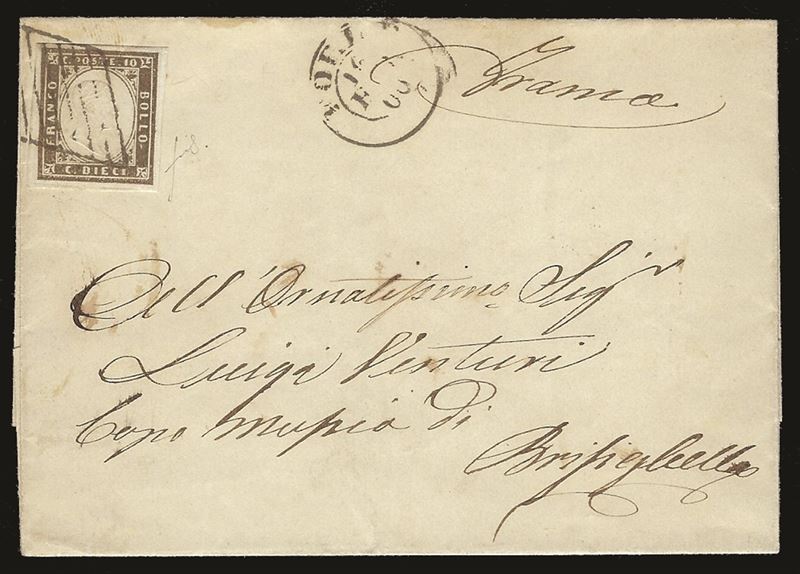 C. POSTE 10
FRANCO
BOLLO
C. DIECI
Franca
All' Ornatissimo Sigr
Luigi Venturi
Capo
di
Brisighella